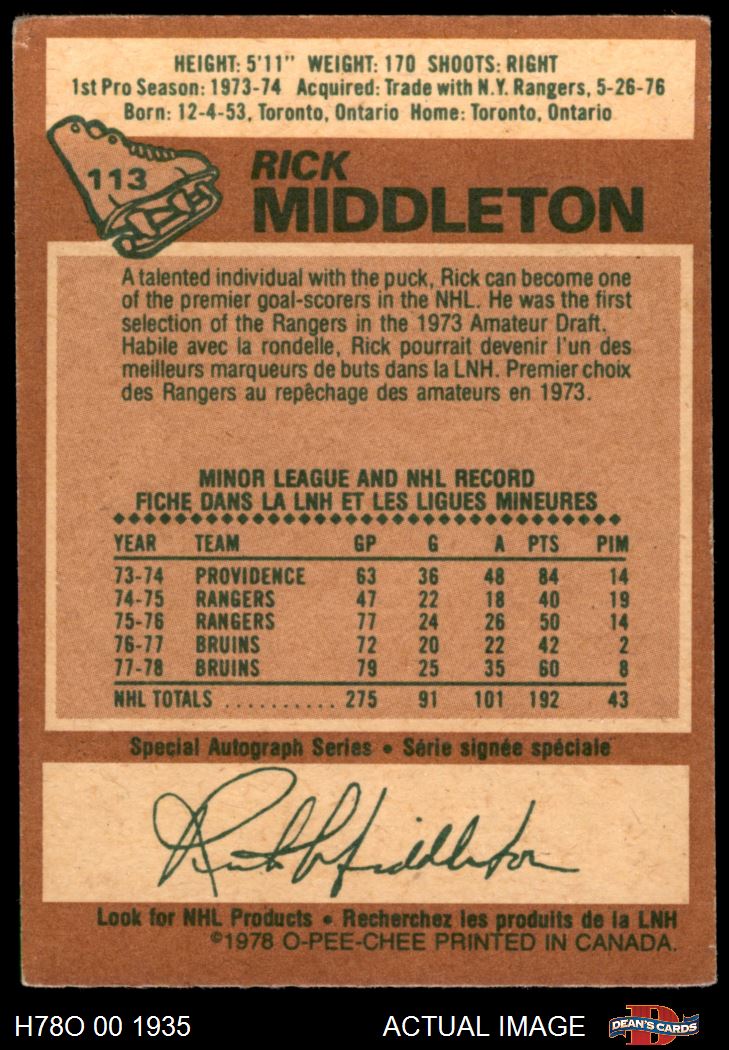 HEIGHT: 5'11" WEIGHT: 170 SHOOTS: RIGHT
1st Pro Season: 1973-74 Acquired: Trade with N.Y. Rangers, 5-26-76
Born: 12-4-53, Toronto, Ontario Home: Toronto, Ontario
113
RICK
MIDDLETON
A talented individual with the puck, Rick can become one
of the premier goal-scorers in the NHL. He was the first
selection of the Rangers in the 1973 Amateur Draft.
Habile avec la rondelle, Rick pourrait devenir l'un des
meilleurs marqueurs de buts dans la LNH. Premier choix
des Rangers au repêchage des amateurs en 1973.
MINOR LEAGUE AND NHL RECORD
FICHE DANS LA LNH ET LES LIGUES MINEURES
YEAR TEAM GP G A PTS PIM
73-74 PROVIDENCE 63 36 48 84 14
74-75 RANGERS 47 22 18 40 19
75-76 RANGERS 77 24 26 50 14
76-77 BRUINS 72 20 22 42 2
77-78 BRUINS 79 25 35 60 8
NHL TOTALS .......... 275 91 101 192 43
Special Autograph Series • Série signée spéciale
Rick Middleton
Look for NHL Products • Recherchez les produits de la LNH
©1978 O-PEE-CHEE PRINTED IN CANADA.
H78O 00 1935 ACTUAL IMAGE DEAN'S CARDS